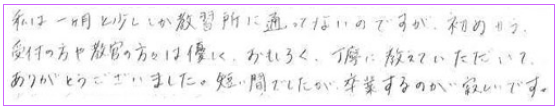 私は一ヶ月と少ししか教習所に通ってないのですが、初めから、
受付の方や教官の方々は優しく、おもしろく、丁寧に教えていただいて、
ありがとうございました。短い間でしたが、卒業するのが寂しいです。